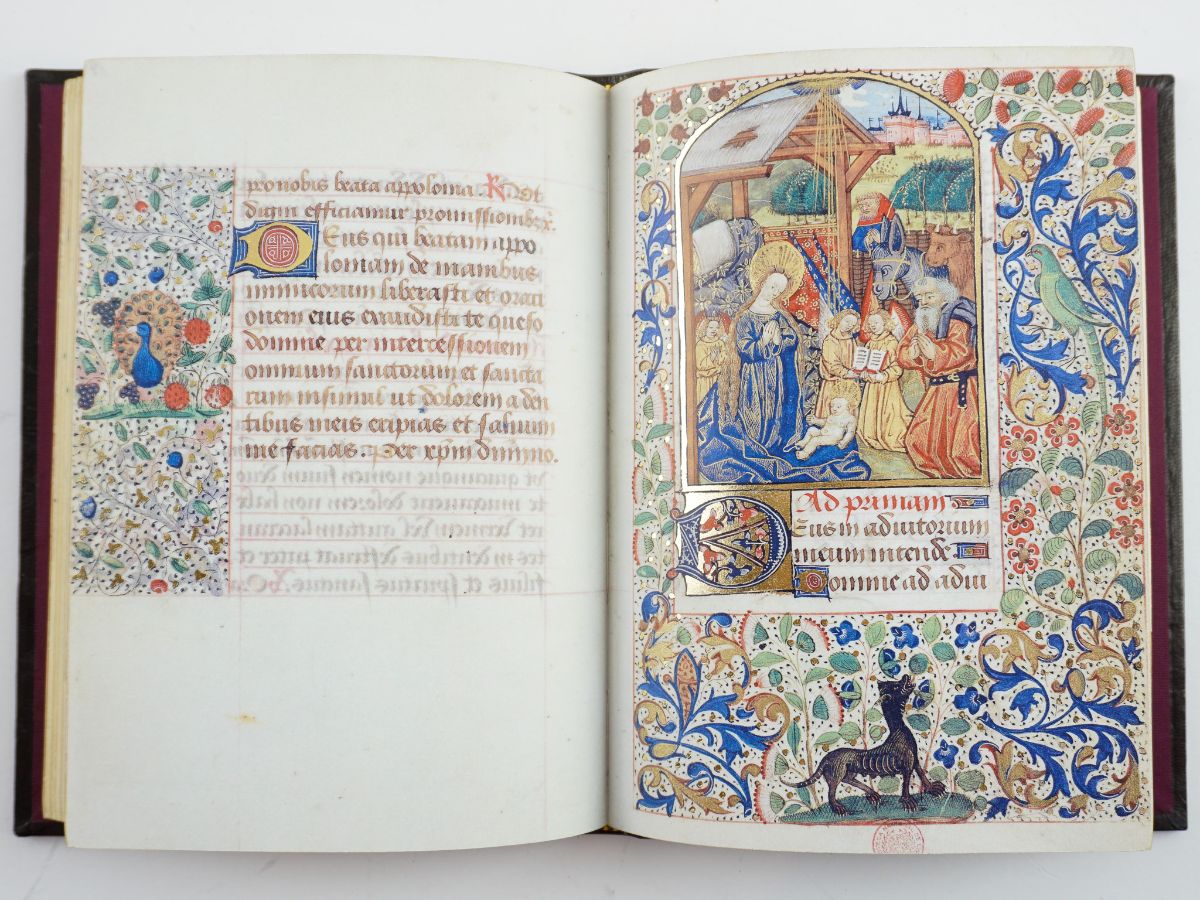 pro nobis beata appolonia. R Ut
digni efficiamur promissionibz x.
Deus qui beatam appo
loniam de manibus
inimicorum liberasti et orati
onem eius exaudisti te queso
domine per intercessionem
omnium sanctorum et sancta
rum insimul ut dolorem a den
tibus meis eripias et saluum
me facias. Per xpm dnm no.
Ad primam
Deus in adiutorium
meum intende
Domine ad adiu